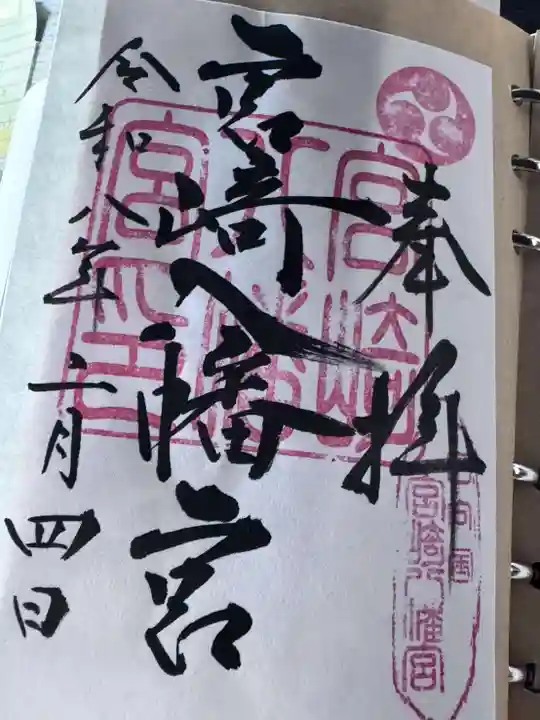 奉拝
宮崎八幡宮
令和八年二月四日
宮崎八幡宮印
日向国
宮崎八幡宮